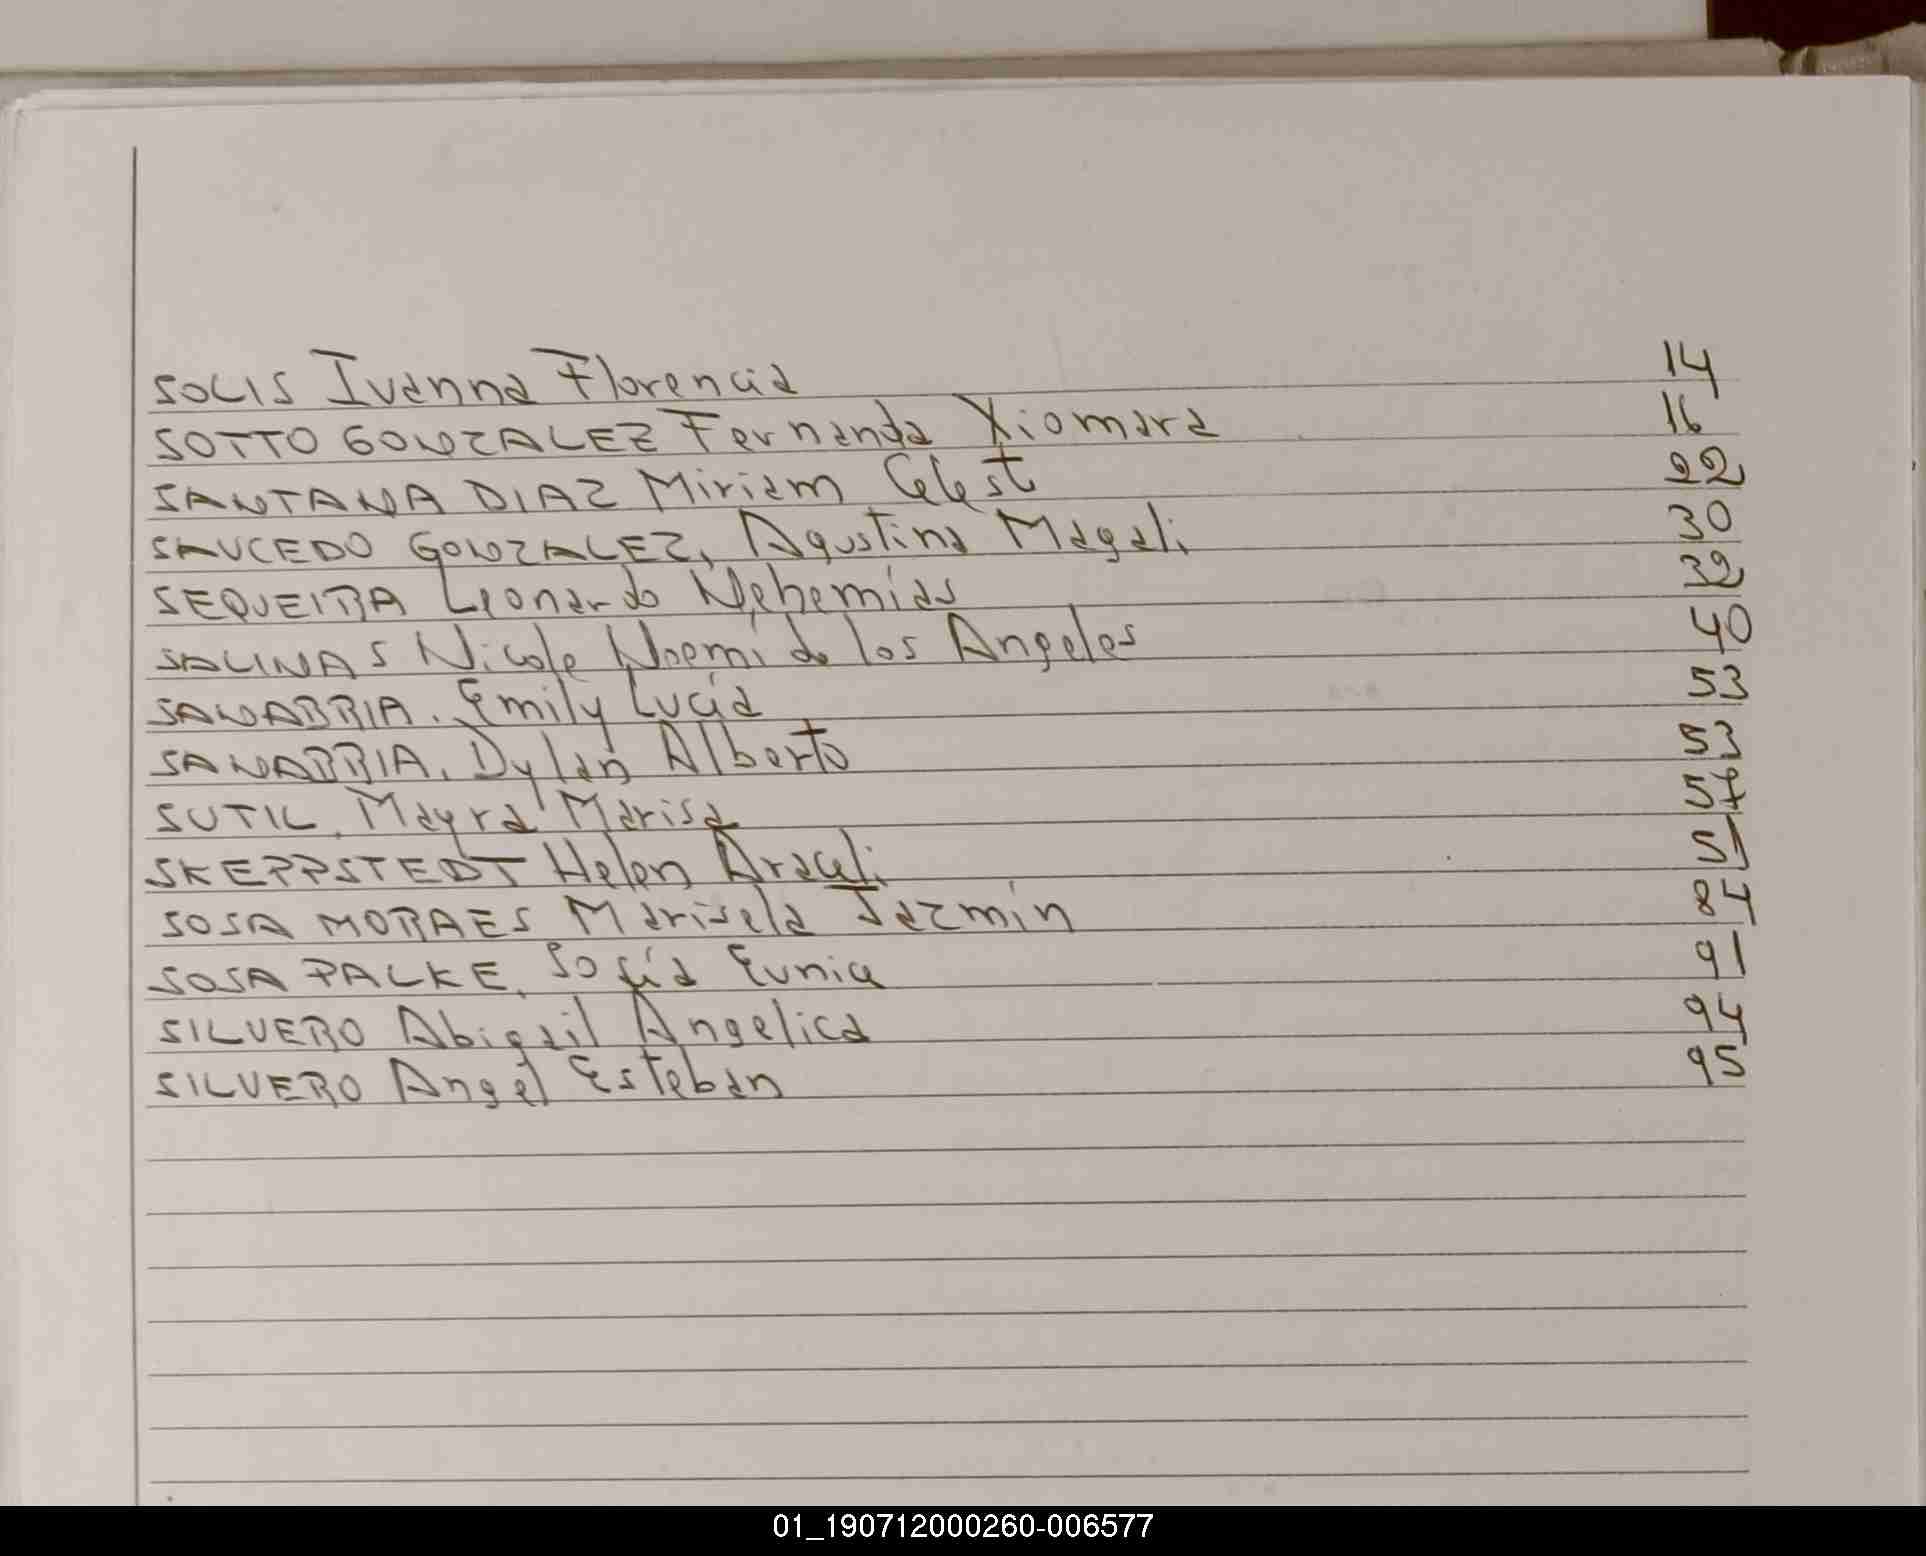 SOLIS Ivanna Florencia 14
SOTTO GONZALEZ Fernanda Xiomara 16
SANTANA DIAZ Miriam Celest 22
SAUCEDO GONZALEZ, Agustina Magali 30
SEQUEIRA Leonardo Nehemías 32
SALINAS Nicole Noemí de los Angeles 40
SANABRIA. Emily Lucía 53
SANABRIA. Dylan Alberto 53
SUTIL. Mayra Marisa
SKEPPSTEDT Helen Araceli
SOSA MORAES Marisela Jazmín 84
SOSA PALKE. Sofía Eunice 91
SILVERO Abigail Angelica 94
SILVERO Angel Esteban 95
01_190712000260-006577